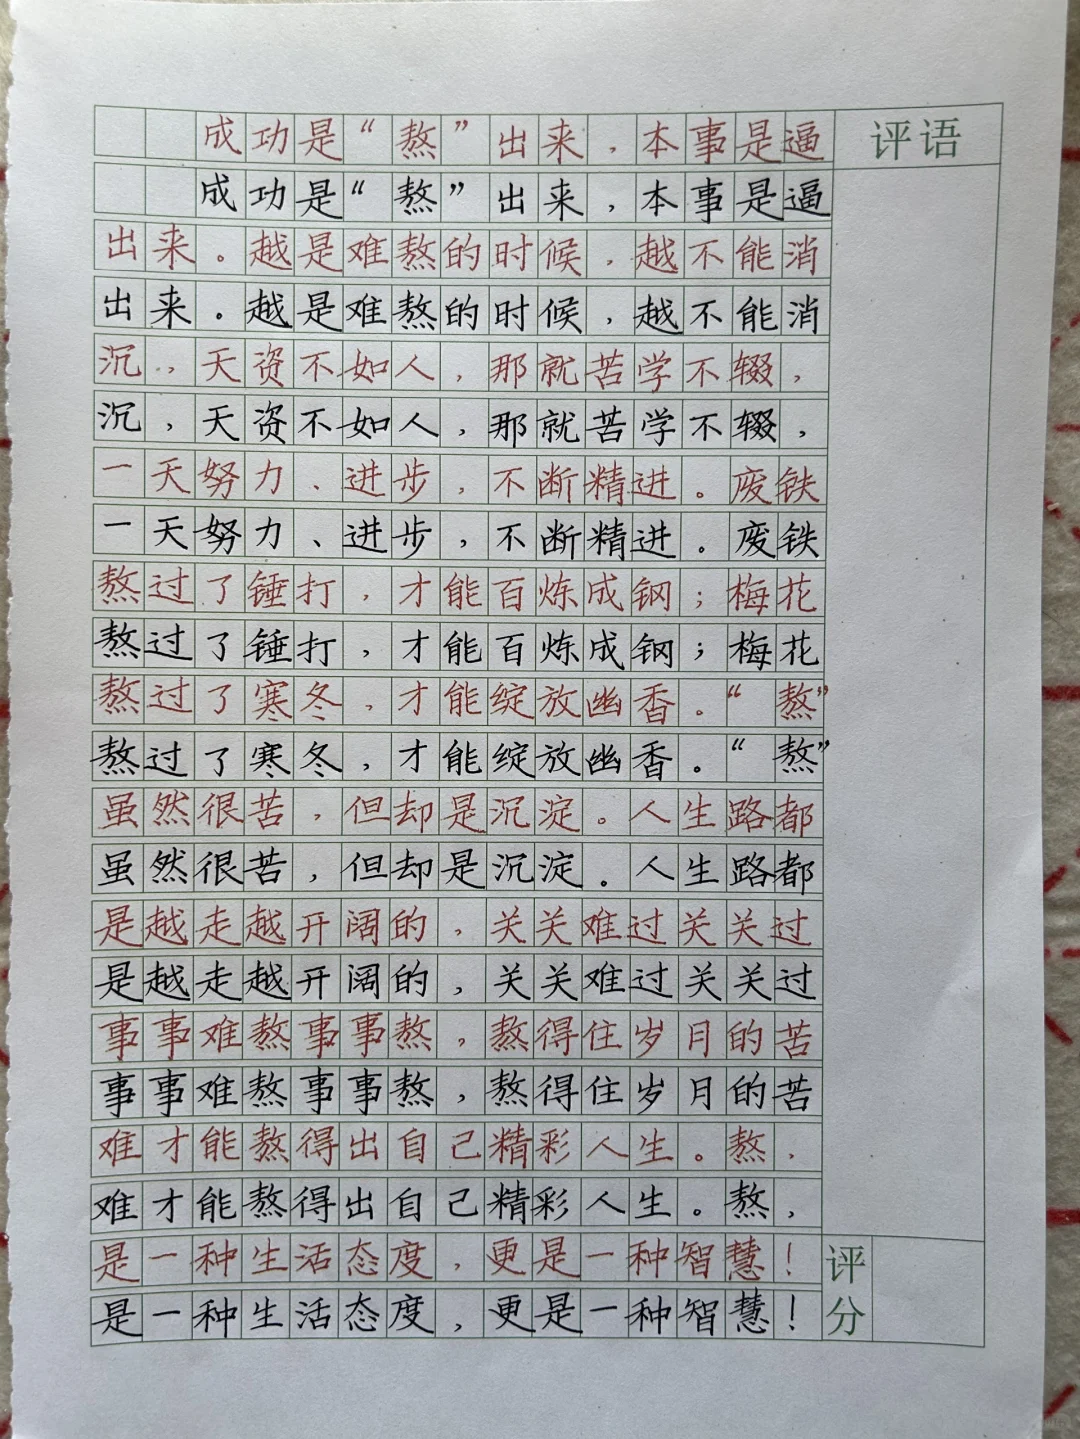 成功是“熬”出来，本事是逼
评语
成功是“熬”出来，本事是逼
出来。越是难熬的时候，越不能消
出来。越是难熬的时候，越不能消
沉，天资不如人，那就苦学不辍，
沉，天资不如人，那就苦学不辍，
一天努力、进步，不断精进。废铁
一天努力、进步，不断精进。废铁
熬过了锤打，才能百炼成钢；梅花
熬过了锤打，才能百炼成钢；梅花
熬过了寒冬，才能绽放幽香。“熬”
熬过了寒冬，才能绽放幽香。“熬”
虽然很苦，但却是沉淀。人生路都
虽然很苦，但却是沉淀。人生路都
是越走越开阔的，关关难过关关过
是越走越开阔的，关关难过关关过
事事难熬事事熬，熬得住岁月的苦
事事难熬事事熬，熬得住岁月的苦
难才能熬得出自己精彩人生。熬，
难才能熬得出自己精彩人生。熬，
是一种生活态度，更是一种智慧！
是一种生活态度，更是一种智慧！
评分